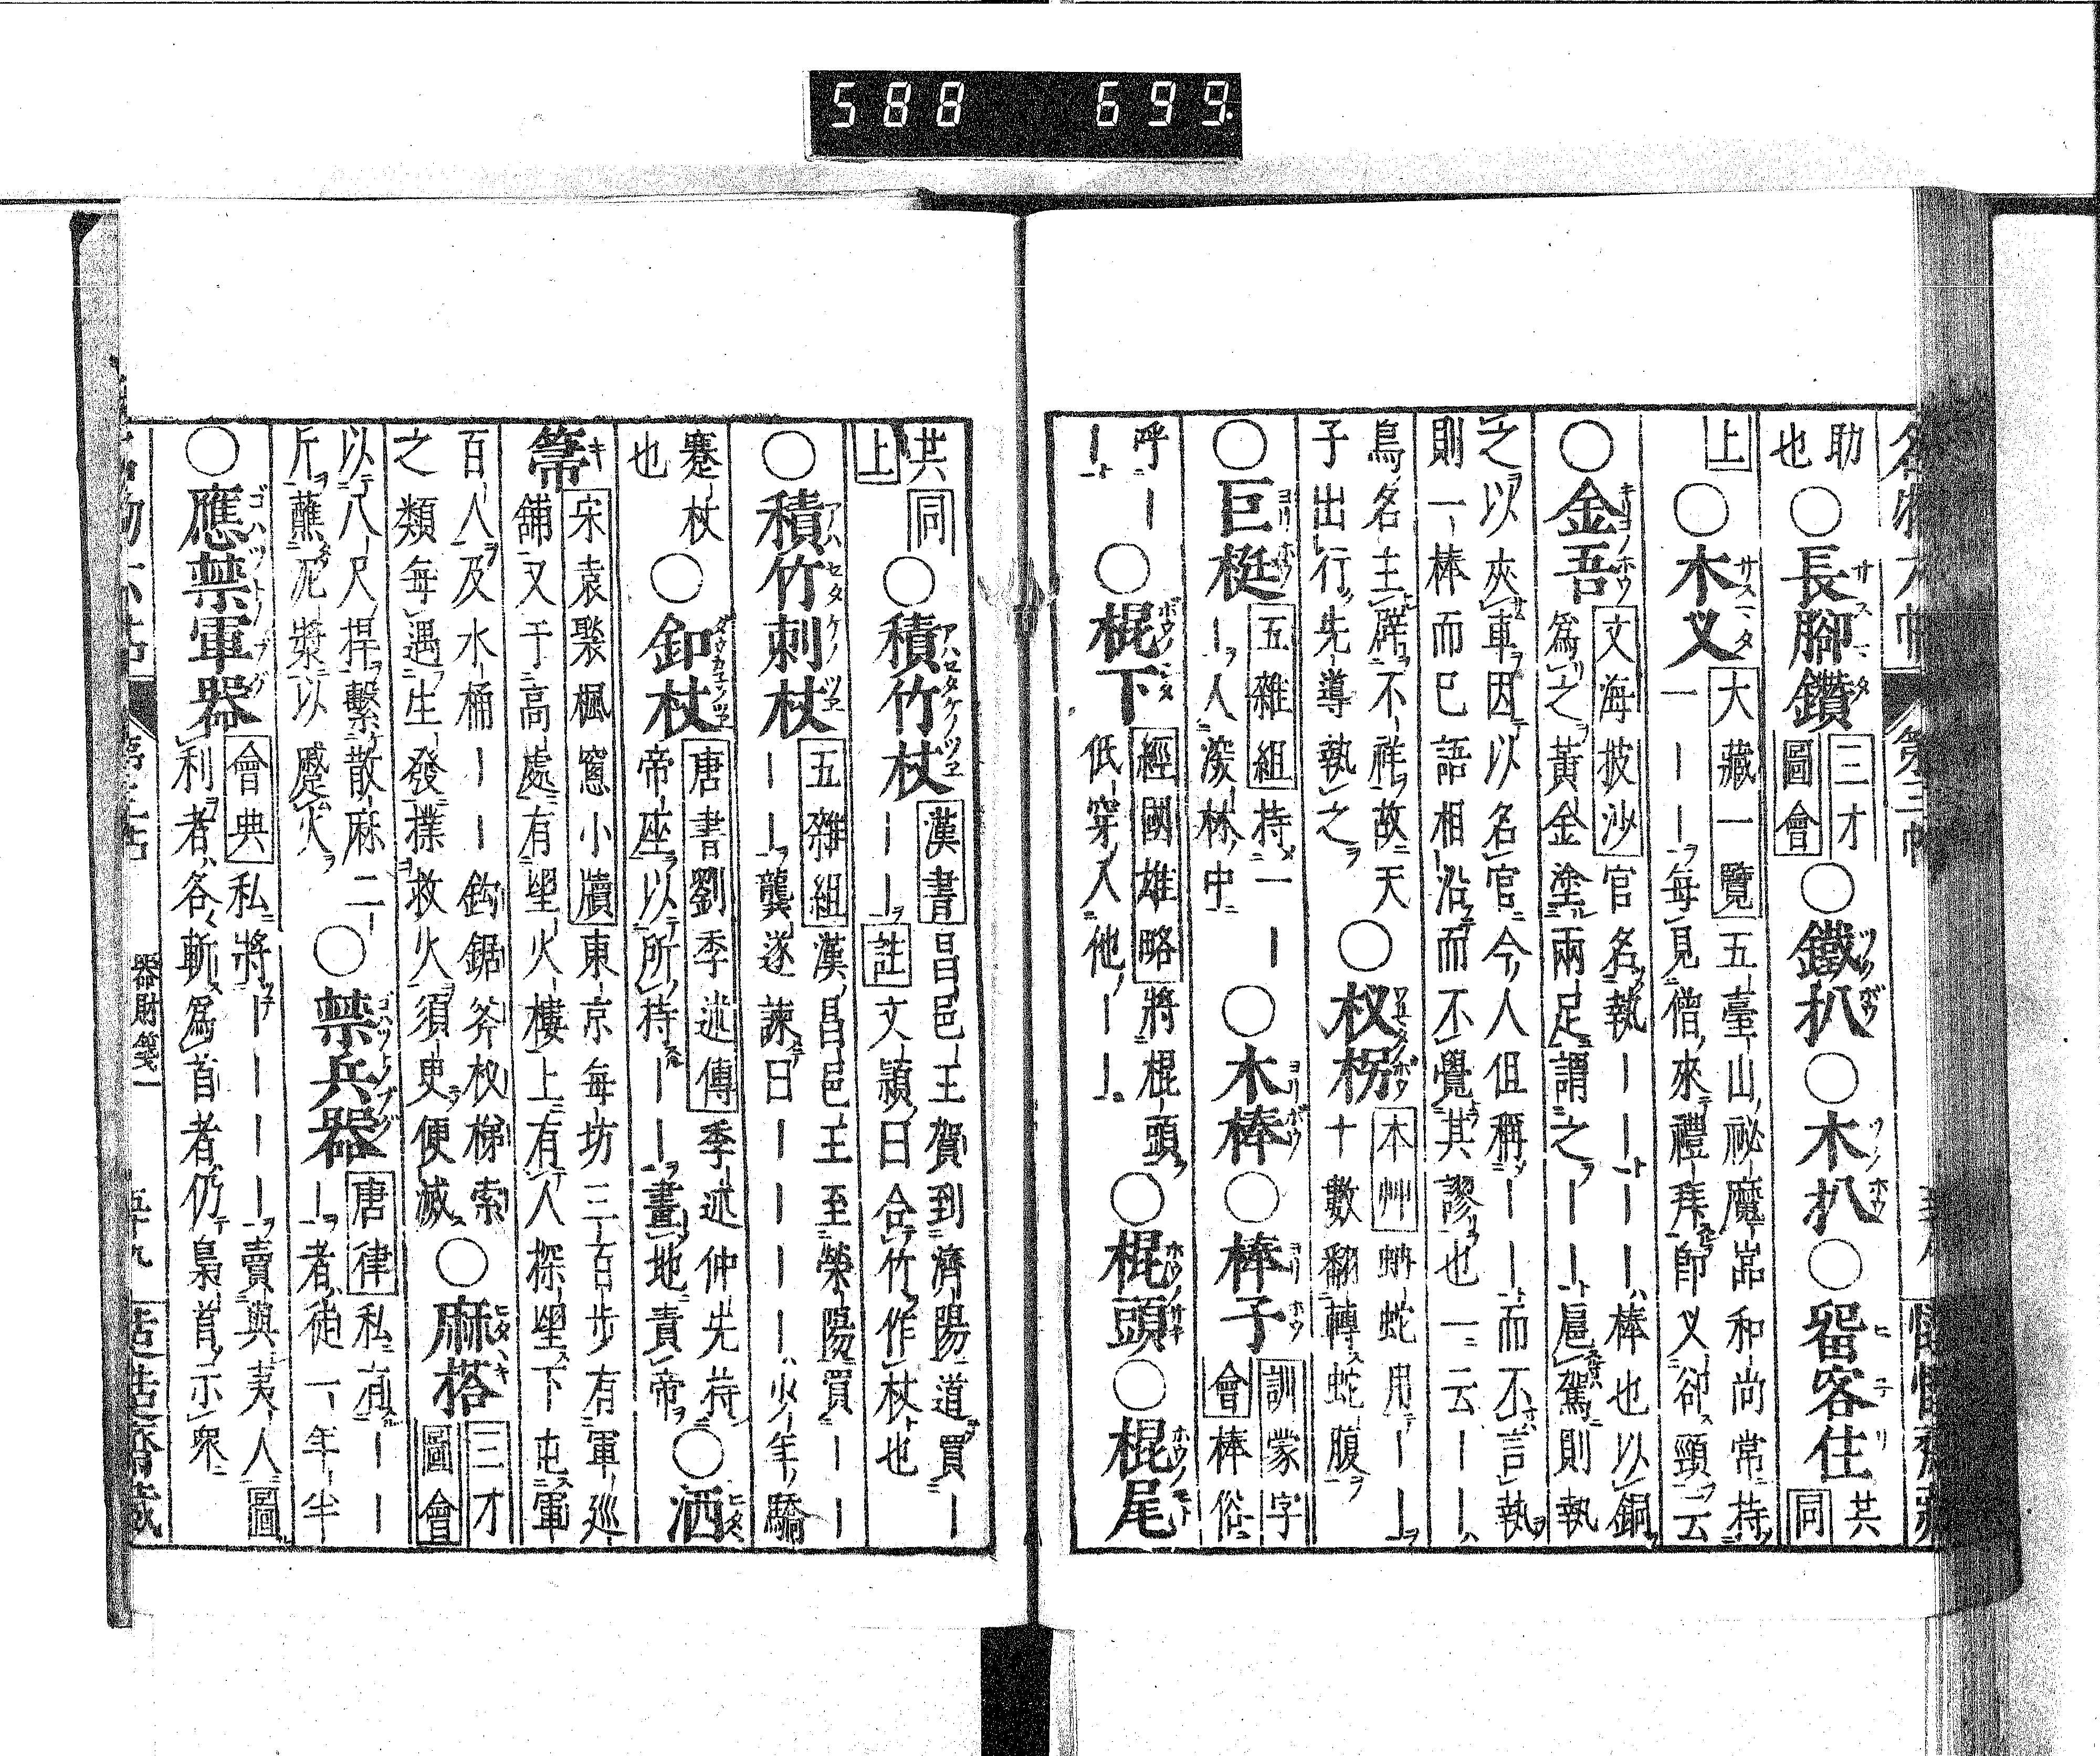 588 699
助也○長脚鑽三才圖會○鐵扒○木扒○畱客住共同
上○木叉大藏一覽五臺山祕魔嵓和尚常持一———每見僧來禮拜卽叉却頸云
○金吾文海披沙官名執————棒也以銅爲之黃金塗兩足謂之——扈駕則執
之以夾車因以名官今人但稱——而不言執則一棒而已語相沿而不覺其謬也一云——
鳥名主辟不祥故天子出行先導執之○杈柺本艸蚺蛇用——十數翻轉蛇腹
○巨梃五雜組持一——人深林中○木棒○棒子訓蒙字會棒俗
呼——○棍下經國雄略將棍頭低穿入他——○棍頭○棍尾
共同上○積竹杖漢書昌邑王賀到濟陽道買———註文穎曰合竹作杖也
○積竹刺杖五雜組漢昌邑王至榮陽買————龔遂諫曰————少年驕
蹇杖也○釦杖唐書劉季述傳季述仲先持帝座以所持——畫地責帝○洒
箒宋袁褧楓窻小牘東京每坊三百步有軍巡舖又于高處有望火樓上有人探望下屯軍
百人及水桶——鈎鋸斧杈梯索之類每遇生發撲救火須臾便滅○麻搭三才圖會
以八尺捍繫散麻二斤蘸泥漿以蹙火○禁兵器唐律私有———者徒一年半
○應禁軍器會典私將————賣與夷人圖利者各斬爲首者仍梟首示衆
器財箋一